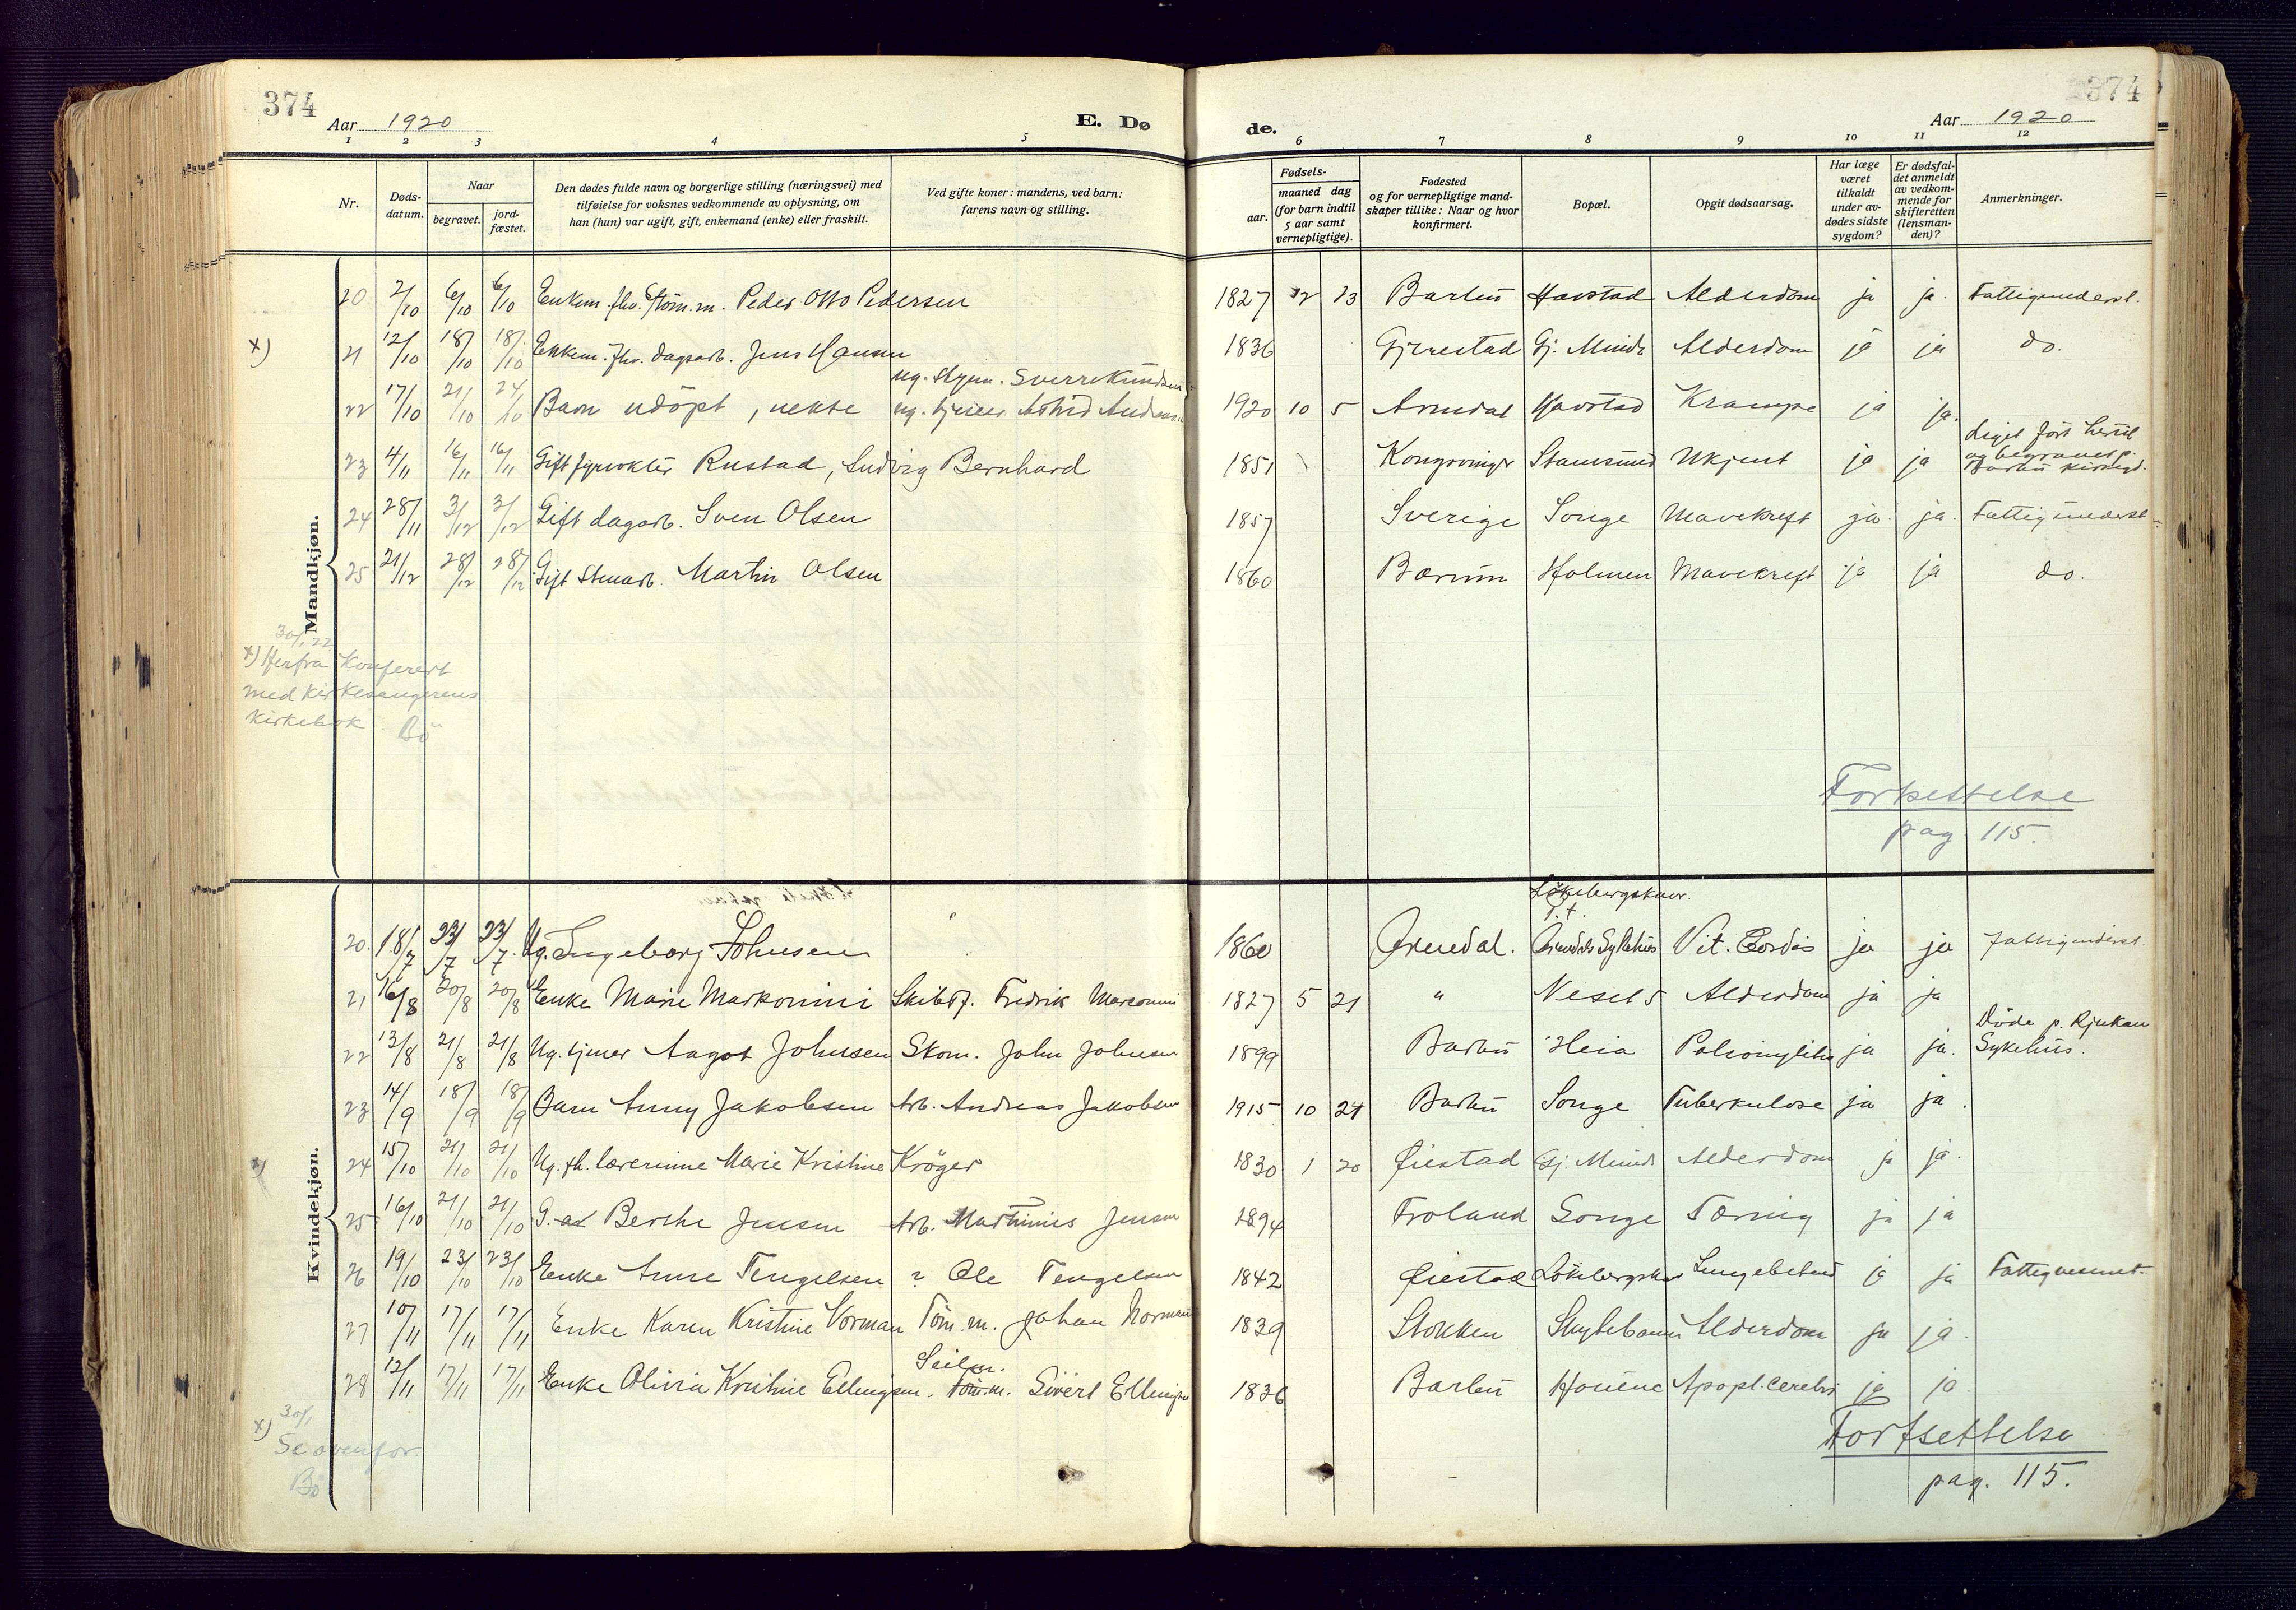 374
374
Aar 1920
E. Dø
de.
Aar 1920
1 2 3 4 5 6 7 8 9 10 11 12
Nr.
Døds-
datum.
Naar
begravet.
jord-
fæstet.
Den dødes fulde navn og borgerlige stilling (næringsvei) med
tilføielse for voksnes vedkommende av oplysning, om
han (hun) var ugift, gift, enkemand (enke) eller fraskilt.
Ved gifte koner: mandens, ved barn:
farens navn og stilling.
Fødsels-
aar.
maaned dag
(for barn indtil
5 aar samt
vernepligtige).
Fødested
og for vernepligtige mand-
skaper tillike: Naar og hvor
konfirmert.
Bopæl.
Opgit dødsaarsag.
Har læge
været
tilkaldt
under av-
dødes sidste
sygdom?
Er dødsfal-
det anmeldt
av vedkom-
mende for
skifteretten
(lensman-
den)?
Anmerkninger.
Mandkjøn.
20 2/10 6/10 6/10 Enkem. fhv. Tøm.m. Peder Otto Pedersen 1827 12 23 Barbu Havstad Alderdom ja ja. Fattigunderst.
x) 21 12/10 18/10 18/10 Enkem. fhv. dagsarb. Jens Hansen 1836 Gjerestad Gj. Minde Alderdom ja ja do.
ug. Sverre Knudsen
22 17/10 21/10 24/10 Barn udöpt, uekte ug. tjener Astrid 1920 10 5 Arendal Havstad Krampe ja ja.
Liget fört hertil
og begravet p.
23 4/11 16/11 16/11 Gift fyrvokter Rustad, Ludvig Bernhard 1851 Kongsvinger Stamsund Ukjent ja ja Barbu kirkegd.
24 28/11 3/12 3/12 Gift dagarb. Sven Olsen 1857 Sverige Songe Mavekreft ja. ja. Fattigunderst.
25 21/12 28/12 28/12 Gift Stenarb. Martin Olsen 1860 Bærum Holmen Mavekreft ja ja do.
30/1 22
x) Herfra konferert
med kirkesangerens
kirkebok. Bö
Fortsettelse
pag 115.
Kvindekjøn.
Lökebergskar.
P.t.
20. 18/7 23/7 23/7 Ug. Ingeborg Johnsen 1860 Arendal. Arendals Sykehus Vit. Cordis ja ja Fattigunderst.
21 16/8 20/8 20/8 Enke Marie Markonini Skibsf. Fredrik Marconini 1827 5 21 " Neset 5 Alderdom ja ja
Döde p. Rjukan
22 13/8 21/8 21/8 Ug. tjener Aagot Johnsen Skom. John Johnsen 1899 Barbu Heia ja ja. Sykehus.
23 14/9 18/9 18/9 Barn Anny Jakobsen Arb. Andreas Jakobsen 1915 10 24 Barbu Songe Tuberkulose ja ja.
x) 24 15/10 21/10 21/10 Ug. fh. lærerinne Marie Kristine Kröger 1830 1 20 Øiestad Gj. Minde Alderdom ja ja.
25 16/10 21/10 21/10 G. Berthe Jensen Arb. Martinius Jensen 1894 Froland Songe Tæring ja ja
26 19/10 23/10 23/10 Enke Anne Tengelsen ? Ole Tengelsen 1842 Øiestad Lökebergskar Lungebetend ja ja
27 10/11 17/11 17/11 Enke Karen Kristine Norman Töm.m. Johan Norman 1839 Stokken Skytebanen Alderdom ja ja.
Seilm.
28 12/11 17/11 17/11 Enke Olivia Kristine Ellingsen. Töm.m. Sivert Ellingsen 1836 Barbu Houene Apopl. Cerebri ja ja
Fortsettelse
pag. 115.
x) 30/1
Se ovenfor.
Bö